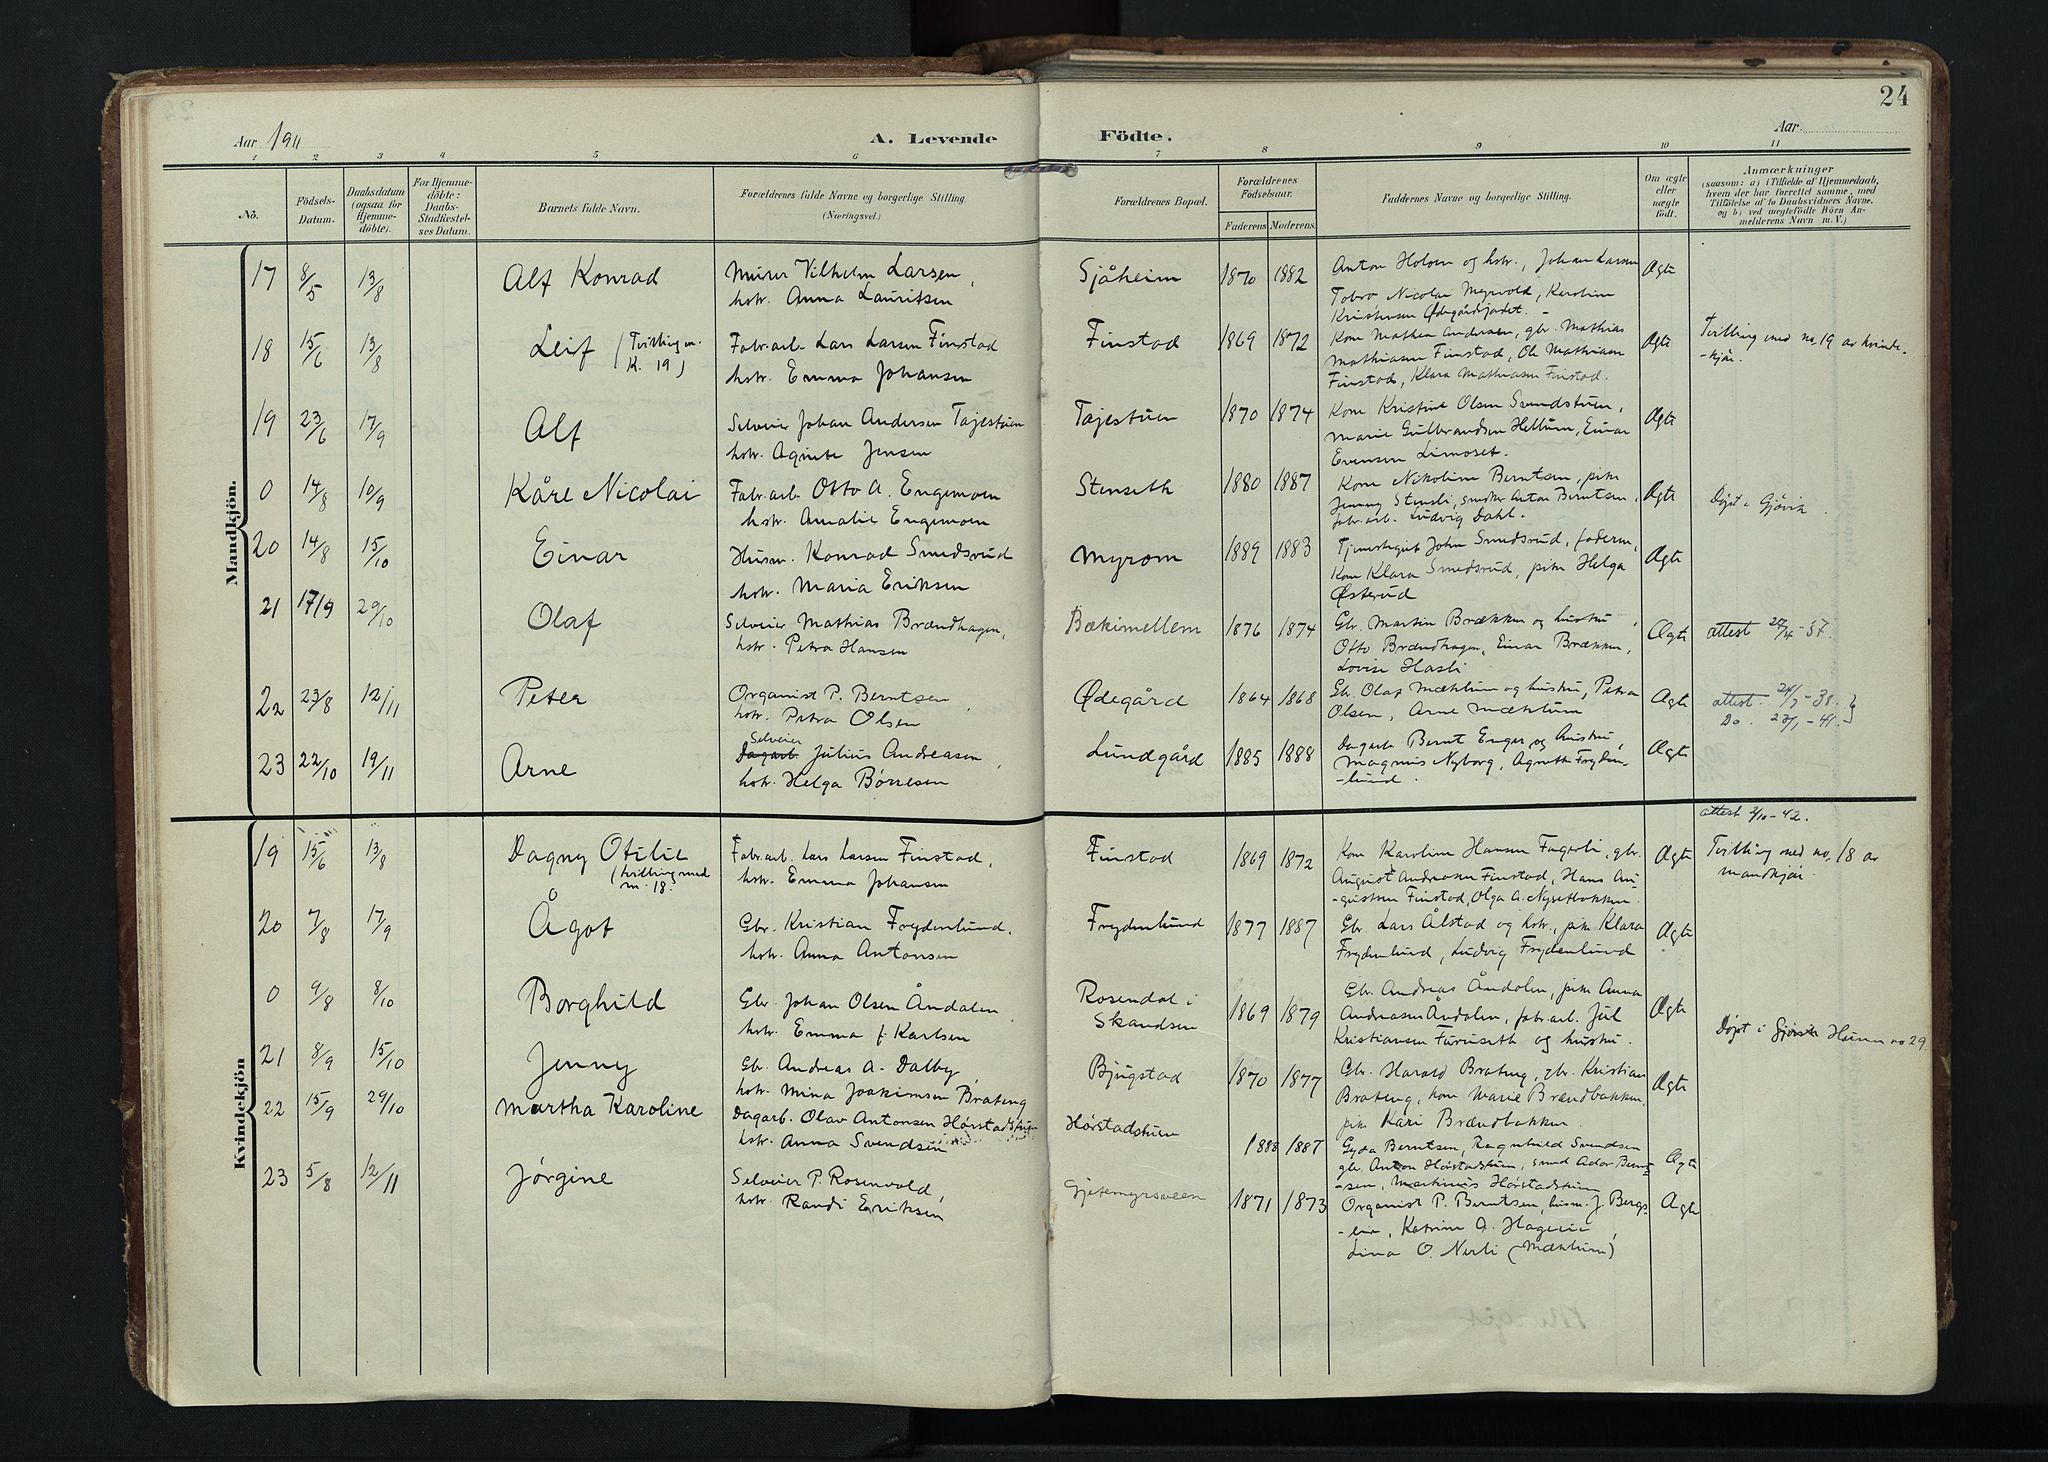 24
Aar 1911
A. Levende Födte.
Aar
1 2 3 4 5 6 7 8 9 10 11
No.
Födsels-Datum.
Daabsdatum (ogsaa for Hjemme-döbte).
For Hjemme-döbte: Daabs-Stadfæstel-ses Datum.
Barnets fulde Navn.
Forældrenes fulde Navne og borgerlige Stilling. (Næringsvei.)
Forældrenes Bopæl.
Forældrenes Födselsaar.
Faderens Moderens
Faddernes Navne og borgerlige Stilling.
Om ægte eller uægte født.
Anmærkninger
(saasom: a) i Tilfælde af Hjemmedaab,
hvem der har forrettet samme, med
Tilföielse af to Daabsvidners Navne,
og b) ved uægtefödte Börn An-
melderens Navn m. V.)
Mandkjön.
17 8/5 13/8 Alf Konrad Murer Vilhelm Larsen, Sjåheim 1870 1882 Anton Holsen og hstr., Johan Larsen Ægte
hstr. Anna Lauritsen Nicolai Myrvold, Karoline
Kristensen Ødegårdsjordet. -
18 15/6 13/8 Leif (Tvilling m. K. 19) Fabr.arb. Lars Larsen Finstad Finstad 1869 1872 Kone Mathea Andersen, gbr. Mathias Ægte Tvilling med no. 19 av kvinde-
hstr. Emma Johansen Mathiasen Finstad, Ole Mathiasen -kjön.
Finstad, Klara Mathiasen Finstad.
19 23/6 17/9 Alf Selveier Johan Andersen Tajestuen Tajestuen 1870 1874 Kone Kristine Olsen Svendstuen, Ægte
hstr. Agnete Jensen Marie Gulbrandsen Hellum, Einar
Evensen Limoset.
0 14/8 10/9 Kåre Nicolai Fabr.arb. Otto A. Engemoen Stenseth 1880 1887 Kone Nikoline Berntsen, pike Ægte Døpt i Gjøvik.
hstr. Amalie Engemoen Jenny Stensli, snedker Anton Berntsen,
fabr.arb. Ludvig Dahl.
20 14/8 15/10 Einar Husm. Konrad Smedsrud Myrom 1889 1883 John Smedsrud, faderen, Ægte
hstr. Maria Eriksen Kone Klara Smedsrud, pike Helga
Østerud
21 17/9 29/10 Olaf Selveier Mathias Brændhagen, Bækimellem 1876 1874 Gbr. Martin Brækken og hustru, Ægte attest 27/4-37.
hstr. Petra Hansen Otto Brændhagen, Einar Brækken,
Lovise Hasli
22 23/8 12/11 Peter Organist P. Berntsen, Ødegård 1864 1868 Gb. Olaf Mæhlum og hustru, Petra Ægte attest 24/7-38.
hstr. Petra Olsen Olsen, Arne Mæhlum Do. 27/1-41.
23 22/10 19/11 Arne Selveier
Dagarb. Julius Andreasen, Lundgård 1885 1888 Dagarb. Bernt Enger og hustru, Ægte
hstr. Helga Børresen Magnus Nyborg, Agnethe Fryden-
-lund.
attest 2/10-42.
Kvindekjön
19 15/6 13/8 Dagny Otilie Fabr.arb. Lars Larsen Finstad, Finstad 1869 1872 Kone Karoline Hansen Fagerli, gbr. Ægte Tvilling med no. 18 av
(tvilling med m. 18. hstr. Emma Johansen August Andreasen Finstad, Hans Au- mandkjön.
-gustsen Finstad, Olga A. Nysetbakken.
20 7/8 17/9 Ågot Gbr. Kristian Frydenlund, Frydenlund 1877 1887 Gbr. Lars Ålstad og hstr., pike Klara Ægte
hstr. Anna Antonsen Frydenlund, Ludvig Frydenlund
0 9/8 8/10 Borghild Gbr. Johan Olsen Åndalen, Rosendal i 1869 1879 Gbr. Andreas Åndalen, pike Anna Ægte
hstr. Emma f. Karlsen Skandsen Andreasen Åndalen, fabr.arb. Jul Døpt i Hunn no 29.
Kristiansen Furuseth og hustru.
21 8/9 15/10 Jenny Gbr. Andreas A. Dalby, Bjugstad 1870 1877 Gbr. Harald Brateng, gbr. Kristian Ægte
hstr. Mina Joakimsen Brateng Brateng, kone Marie Brændbakken,
pike Kari Brændbakken.
22 15/9 29/10 Martha Karoline Dagarb. Olav Antonsen Hørstadstuen Hørstadstuen 1888 1887 Gyda Berntsen, Ragnhild Svendsen Ægte
hstr. Anna Svendsen gbr. Anton Hørstadstuen, smed Ador Bernt-
-sen, Martinus Hørstadstuen
23 5/8 12/11 Jørgine Selveier P. Rosenvold, Gjetemyrsveen 1871 1873 Organist P. Berntsen, husm. J. Bergs- Ægte
hstr. Randi Eriksen Katrine A. Hageeie,
Lina O. Nerli (Mæhlum)